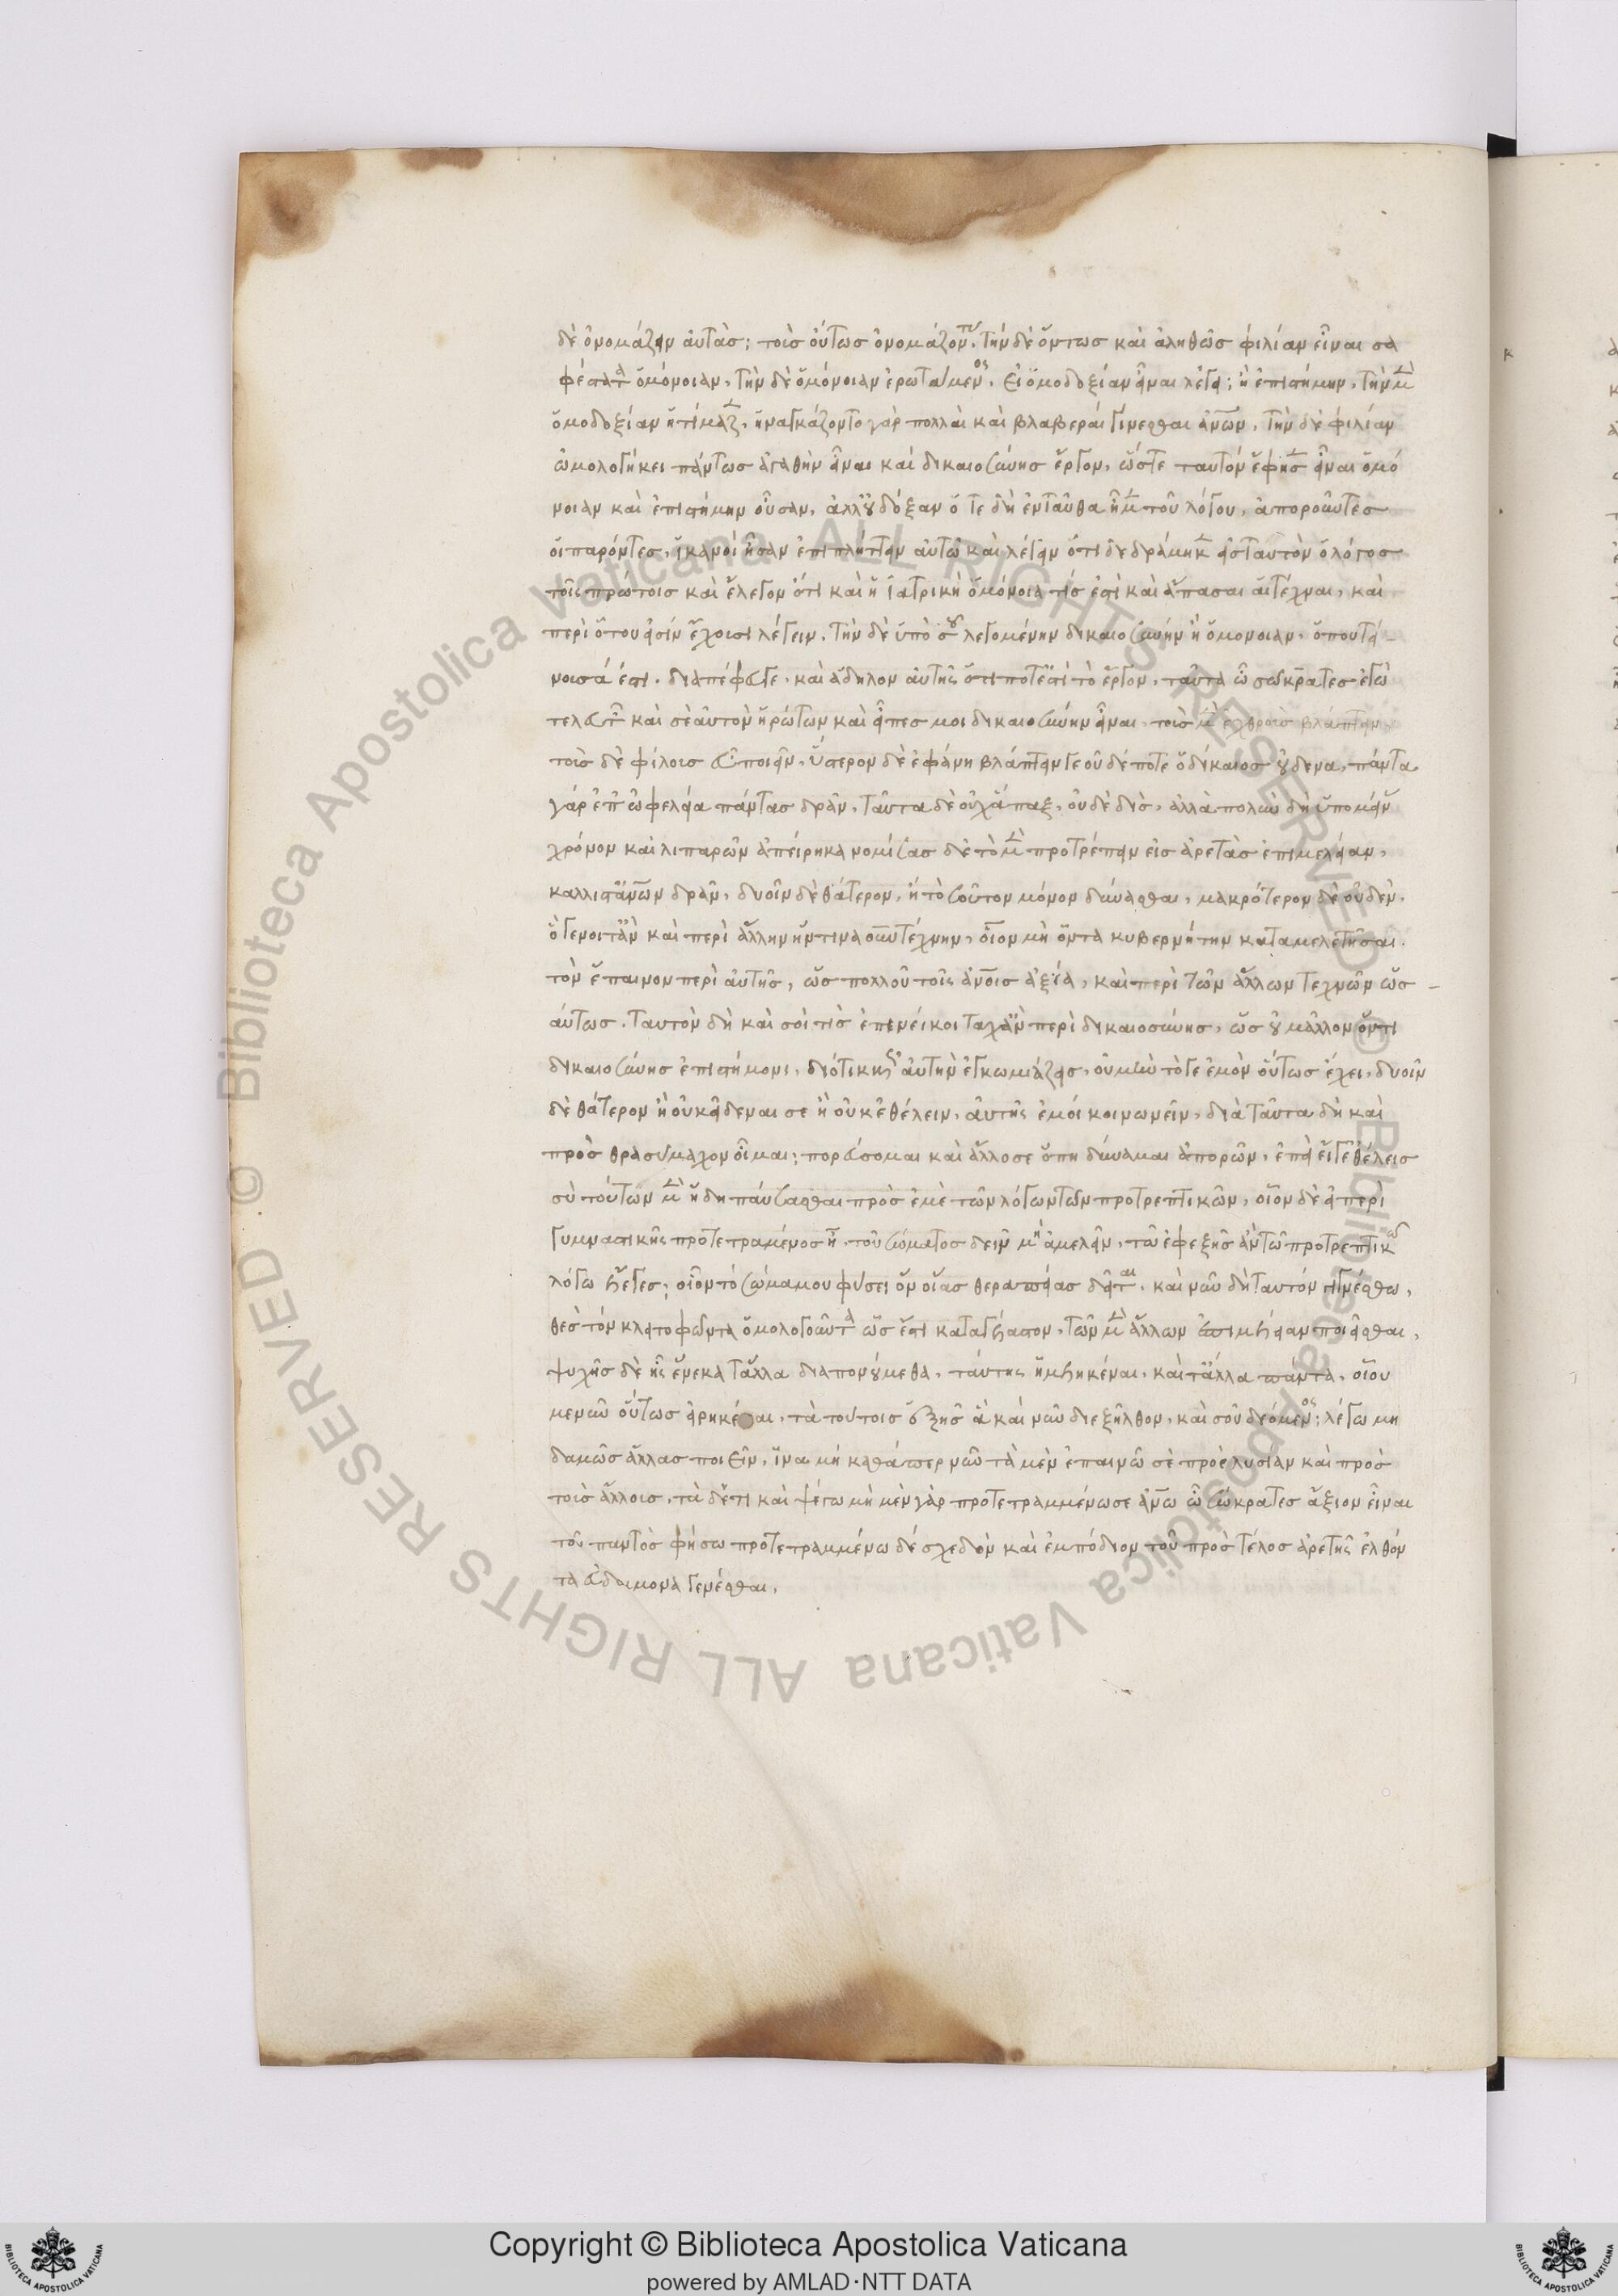 δὲ ὀνομάζειν αὐτὰς; τοῖς οὕτως ὀνομάζουσιν. τὴν δὲ ὄντως καὶ ἀληθῶς φιλίαν εἶναι σα
φέστατα ὁμόνοιαν, τὴν δὲ ὁμόνοιαν ἐρωτώμενος, εἰ ὁμοδοξίαν εἶναι λέγει; ἢ ἐπιστήμην, τὴν μὲν
ὁμοδοξίαν ἠτίμαζεν, ἠναγκάζοντο γὰρ πολλαὶ καὶ βλαβεραὶ γίνεσθαι ἀνων, τὴν δὲ φιλίαν
ὡμολογήκει πάντως ἀγαθὴν εἶναι καὶ δικαιοσύνης ἔργον, ὥστε ταυτὸν ἔφησεν εἶναι ὁμό
νοιαν καὶ ἐπιστήμην οὖσαν, ἀλλ' οὐ δόξαν ὅτε δὴ ἐνταῦθα ἦμεν τοῦ λόγου, ἀποροῦντες
οἱ παρόντες, ἱκανοὶ ἦσαν ἐπιπλήττειν αὐτῷ καὶ λέγειν ὅτι δεδράμηκεν εἰς ταυτὸν ὁ λόγος
τοῖς πρώτοις καὶ ἔλεγον ὅτι καὶ ἡ ἰατρικὴ ὁμόνοιά τίς ἐστι καὶ ἅπασαι αἱ τέχναι, καὶ
περὶ ὅτου εἰσὶν ἔχουσι λέγειν. τὴν δὲ ὑπὸ σοῦ λεγομένην δικαιοσύνην ἢ ὁμόνοιαν, ὅπου τεί
νουσά ἐστι. διαπέφευγε. καὶ ἄδηλον αὐτῆς ὅτι ποτ' ἐστὶ τὸ ἔργον, ταῦτα ὦ σώκρατες ἐγὼ
τελευτῶν καὶ σὲ αὐτὸν ἠρώτων καὶ εἶπές μοι δικαιοσύνην εἶναι, τοὺς μὲν ἐχθροὺς βλάπτειν
τοὺς δὲ φίλους εὖ ποιεῖν, ὕστερον δὲ ἐφάνη βλάπτειν γε οὐδέποτε ὁ δίκαιος οὐδένα, πάντα
γὰρ ἐπ' ὠφελείᾳ πάντας δρᾶν, ταῦτα δὲ οὐχ ἅπαξ, οὐδὲ δὶς, ἀλλὰ πολὺν δὴ ὑπομείνας
χρόνον καὶ λιπαρῶν ἀπείρηκα νομίσας δὲ τὸ μὲν προτρέπειν εἰς ἀρετὰς ἐπιμέλειαν,
κάλλιστ' ἀνων δρᾶν, δυοῖν δὲ θάτερον, ἢ τοσοῦτον μόνον δύνασθαι, μακρότερον δὲ οὐδὲν.
ὃ γένοιτ' ἂν καὶ περὶ ἄλλην ἥντινα οὖν τέχνην, οἷον μὴ ὄντα κυβερνήτην καταμελετῆσαι.
τὸν ἔπαινον περὶ αὐτῆς, ὡς πολλοῦ τοῖς ἀνοις ἀξία, καὶ περὶ τῶν ἄλλων τεχνῶν ὡς
αύτως. ταυτὸν δὴ καὶ σοί τις ἐπενείκοι τάχ' ἂν περὶ δικαιοσύνης, ὡς οὐ μᾶλλον ὄντι
δικαιοσύνης ἐπιστήμονι, διότι καλῶς αὐτὴν ἐγκωμιάζεις, οὐ μὴν τό γε ἐμὸν οὕτως ἔχει, δυοῖν
δὲ θάτερον ἢ οὐκ εἰδέναι σε ἢ οὐκ ἐθέλειν, αὐτῆς ἐμοὶ κοινωνεῖν, διὰ ταῦτα δὴ καὶ
πρὸς θρασύμαχον οἶμαι; πορεύσομαι καὶ ἄλλοσε ὅπη δύναμαι ἀπορῶν, ἐπεὶ εἴ γ' ἐθέλεις
σὺ τούτων μὲν ἤδη παύσασθαι πρὸς ἐμὲ τῶν λόγων τῶν προτρεπτικῶν, οἷον δὲ εἰ περὶ
γυμναστικῆς προτετραμένος ἦ, τοῦ σώματος δεῖν μὴ ἀμελεῖν, τὸ ἐφεξῆς ἂν τῷ προτρεπτικῷ
λόγῳ ἔλεγες; οἷον τὸ σῶμά μου φύσει ὂν οἵας θεραπείας δεῖται. καὶ νῦν δὴ ταυτὸν γιγνέσθω,
θὲς τὸν κλειτοφῶντα ὁμολογοῦντα ὡς ἔστι καταγέλαστον, τῶν μὲν ἄλλων ἐπιμέλειαν ποιεῖσθαι,
ψυχῆς δὲ ἧς ἕνεκα τἄλλα διαπονούμεθα, ταύτης ἠμεληκέναι, καὶ τἄλλα πάντα, οἷου
με νῦν οὕτως εἰρηκέναι, τὰ τούτοις ἑξῆς ἃ καὶ νῦν διεξῆλθον, καὶ σοῦ δεόμενος; λέγω μη
δαμῶς ἄλλας ποιεῖν, ἵνα μὴ καθάπερ νῦν τὰ μὲν ἐπαινῶ σὲ πρὸς λυσίαν καὶ πρὸς
τοὺς ἄλλους, τὰ δέ τι καὶ ψέγω μὴ μὲν γὰρ προτετραμμένω σε ἀνω ὦ σώκρατες ἄξιον εἶναι
τοῦ παντὸς φήσω προτετραμμένω δὲ σχεδὸν καὶ ἐμπόδιον τοῦ πρὸς τέλος ἀρετῆς ἐλθόν
τα εὐδαίμονα γενέσθαι.
Biblioteca Apostolica Vaticana ALL RIGHTS RESERVED ©
Biblioteca Apostolica Vaticana ALL RIGHTS RESERVED ©
Copyright © Biblioteca Apostolica Vaticana
powered by AMLAD·NTT DATA
BIBLIOTECA APOSTOLICA VATICANA
BIBLIOTECA APOSTOLICA VATICANA